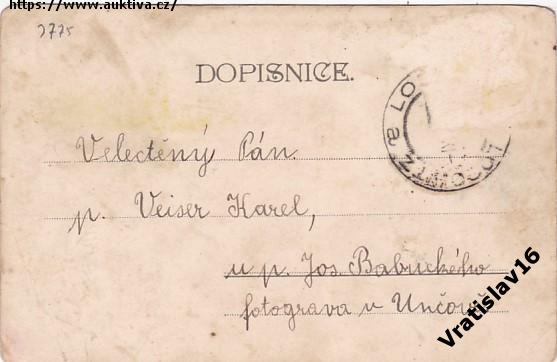 https://www.auktiva.cz/
DOPISNICE.
Velectěný Pán
p. Veiser Karel,
u p. Jos. Babuckého
fotograva v Unčově
Vratislav16